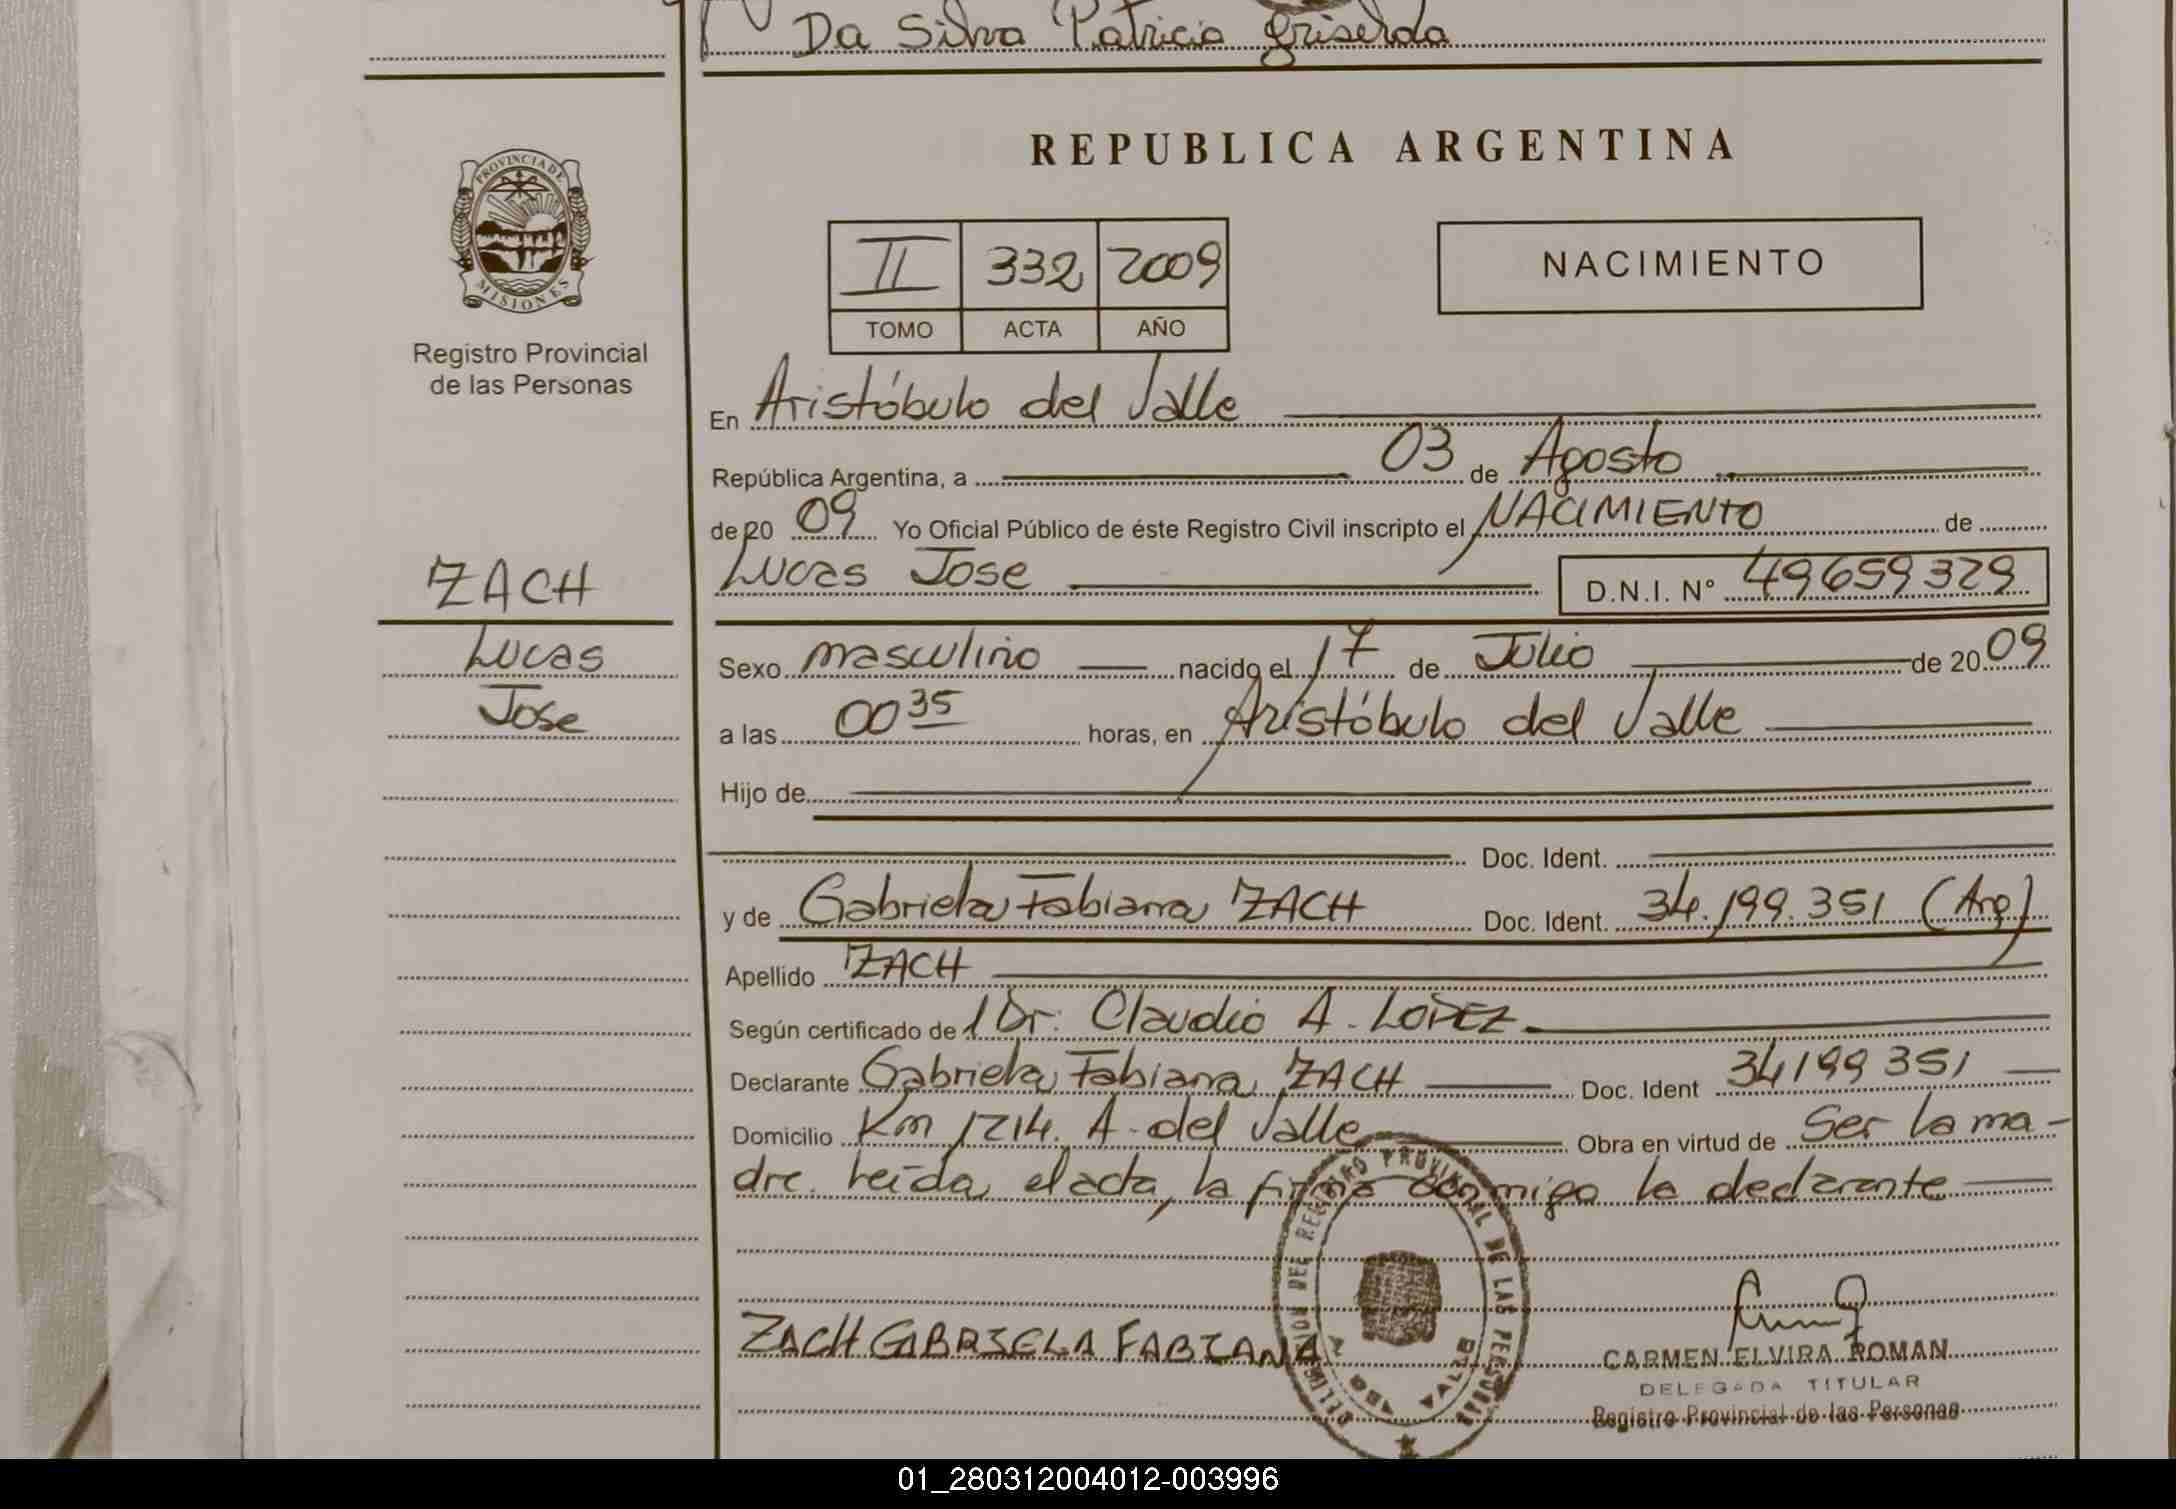 Da Silva Patricia Griselda
REPUBLICA ARGENTINA
PROVINCIA DE
MISIONES
Registro Provincial
de las Personas
II 332 2009
TOMO ACTA AÑO
NACIMIENTO
En Aristóbulo del Valle
República Argentina, a 03 de Agosto
de 20 09 Yo Oficial Público de éste Registro Civil inscripto el NACIMIENTO de
Lucas Jose D.N.I. N° 49659329
ZACH
Lucas
Jose
Sexo masculino nacido el 17 de Julio de 20 09
a las 00 35 horas, en Aristóbulo del Valle
Hijo de
Doc. Ident.
y de Gabriela Fabiana ZACH Doc. Ident. 34.199.351 (Arg)
Apellido ZACH
Según certificado de l Dr. Claudio A. LOPEZ
Declarante Gabriela Fabiana ZACH Doc. Ident 34199351
Domicilio Km 1214. A. del Valle Obra en virtud de Ser la ma-
dre. Leída el acta, la firma conmigo la declarante
ZACH GABRIELA FABIANA
REGISTRO PROVINCIAL DE LAS PERSONAS
CARMEN ELVIRA ROMAN
DELEGADA TITULAR
Registro Provincial de las Personas
01_280312004012-003996